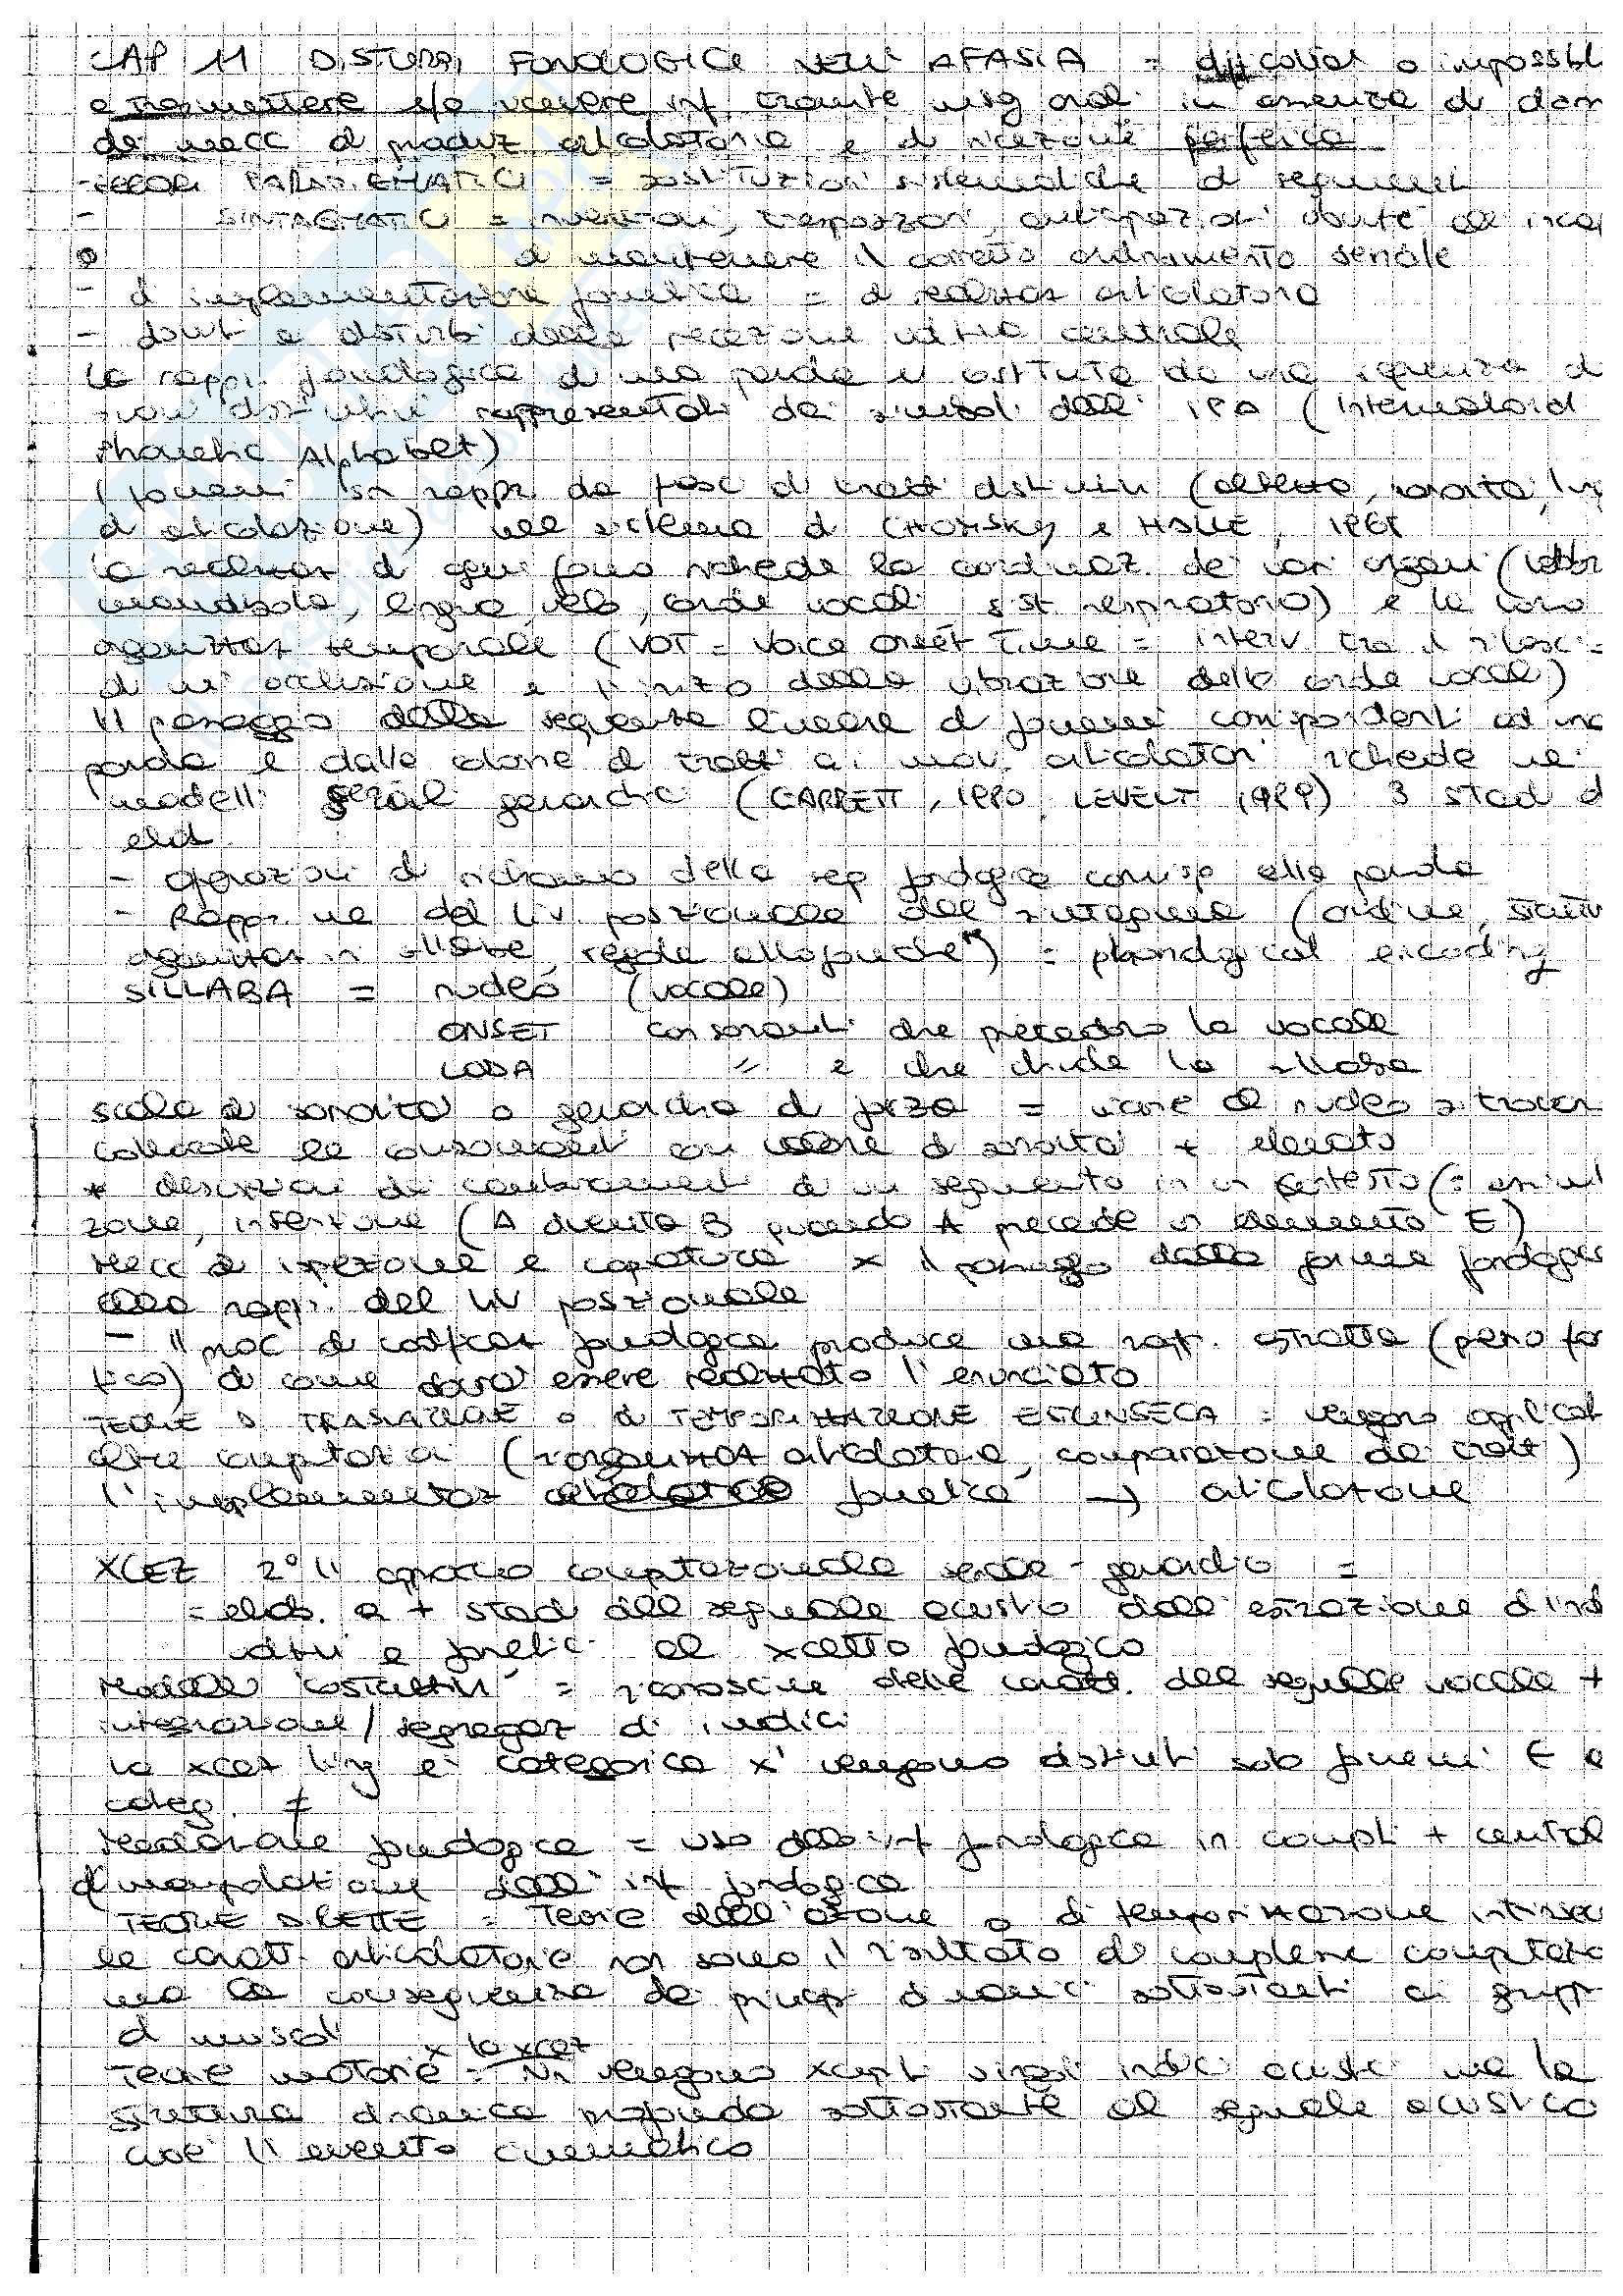 CAP 11 DISTURBI FONOLOGICI NELL'AFASIA = difficoltà o impossibi
a trasmettere e/o ricevere inf. tramite msg orali in assenza di dan
dei mecc di produz articolatoria e di ricezione periferica
- ERRORI PARADIGMATICI = sostituzioni sistematiche di segmenti
- SINTAGMATICI = inversioni, trasposizioni, anticipazioni dovute ad incap
di mantenere il corretto ordinamento seriale
- di implementazione fonetica = di realizzaz articolatoria
- dovuti a disturbi della recezione uditiva centrale
La rappr. fonologica di una parola è costituita da una sequenza di
suoni distintivi rappresentati dai simboli dell'IPA (International
Phonetic Alphabet)
I fonemi sn rappr da fasci di tratti distintivi (altezza, sonorità, luo
di articolazione) nel sistema di CHOMSKY e HALLE, 1968
La realizzaz di ogni fono richiede la coordinaz. dei vari organi (labbra
mandibola, lingua, velo, corde vocali sist respiratorio) e la loro
organizzaz temporale (VOT = Voice Onset Time = interv tra il rilasci
di un'occlusione e l'inizio della vibrazione delle corde vocali)
Il passaggio dalla sequenza lineare di fonemi corrispondenti ad una
parola e dalle colonne di tratti ai mov. articolatori richiede nei
modelli seriali gerarchici (GARRETT, 1980, LEVELT 1989) 3 stadi d
elab.
- operazioni di richiamo della rap fonologica corrisp alla parola
- Rappr ne del liv posizionale del sintagma (ordine, strutt
organizzaz in sillabe, regole allofoniche*) = phonological encoding
SILLABA = nucleo (vocale)
ONSET consonanti che precedono la vocale
CODA = e che chiude la sillaba
scala di sonorità o gerarchia di forza = vicine al nucleo si trovan
collocate le consonanti con valore di sonorità + elevato
* descrizioni dei cambiamenti di un segmento in un contesto (= assimil
zione, inserzione (A diventa B quando A precede un elemento E)
Mecc di ispezione e copiatura x il passaggio dalla forma fonologica
alla rappr. del liv posizionale
- Il proc di codificaz fonologica produce una rapp. astratta (piano fon
tico) di come dovrà essere realizzato l'enunciato
TEORIE DI TRASLAZIONE o di TEMPORIZZAZIONE ESTRINSECA = vengono applicat
altre computazioni (riorganizzaz articolatoria, comparazione dei tratti)
l'implementaz fonetica → articolazione
XCEZ 2° l'approccio computazionale seriale-gerarchico =
= elab. a + stadi del segnale acustico dall'estrazione d'ind
uditivi e fonetici al xcetto fonologico
Modelli "costruttivi" = riconoscim delle caratt. del segnale vocale +
integrazione/segregaz di indici
la xcez ling è categorica xé vengono distinti solo fonemi E a
categ. ≠
Memoria fonologica = uso delle inf fonologica in compiti + central
di manipolazione dell'inf fonologica
TEORIE DIRETTE = Teorie dell'azione o di temporizzazione intrinsec
le caratt articolatorie non sono il risultato di complesse computazio
ma la conseguenza dei principi dinamici sottostanti ai grupp
di muscoli
x la xcez
Teorie motorie = Nn vengono xcepiti singoli indici acustici ma la
struttura dinamica profonda sottostante al segnale acustico
cioè l'evento cinematico